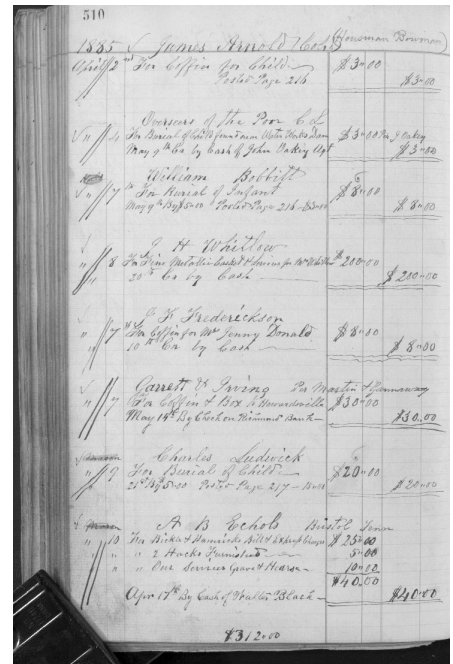 510
(Housman Bowman)
1885 James Arnold Col
April 2nd For Coffin for Child $3.00
Posted Page 216 $3.00
Overseers of the Poor C L
" 4 For Burial of Child found near Water Works Dam $3.00 Per J Oakey
May 9th Cr by Cash of John Oakey Agt $3.00
William Bobbitt
" 7th For Burial of Infant $8.00
May 9th By $5.00 Posted Page 216 $3.00 $8.00
J H Whitlow
" 8 For Fine Metallic Casket & Services for Mr Whitlow $200.00
20th Cr by Cash $200.00
J F Frederickson
" 7th For Coffin for Mrs Jenny Donald $8.00
10th Cr by Cash $8.00
Garrett & Irving Per Martin &
" 7 For Coffin & Box to Edwardsville $30.00
May 14th By Check on Bank $30.00
Charles Ludwick
" 9 For Burial of Child $20.00
21st By 5.00 Posted Page 217 15.00 $20.00
A B Echols Bristol Tenn
" 10 For Ricks & Hamricks Bill & Express Charges $25.00
" " 2 Hacks Furnished 5.00
" " Our Services Grave & Hearse 10.00
$40.00
Apr 17th By Cash of Walter Black $40.00
$312.00